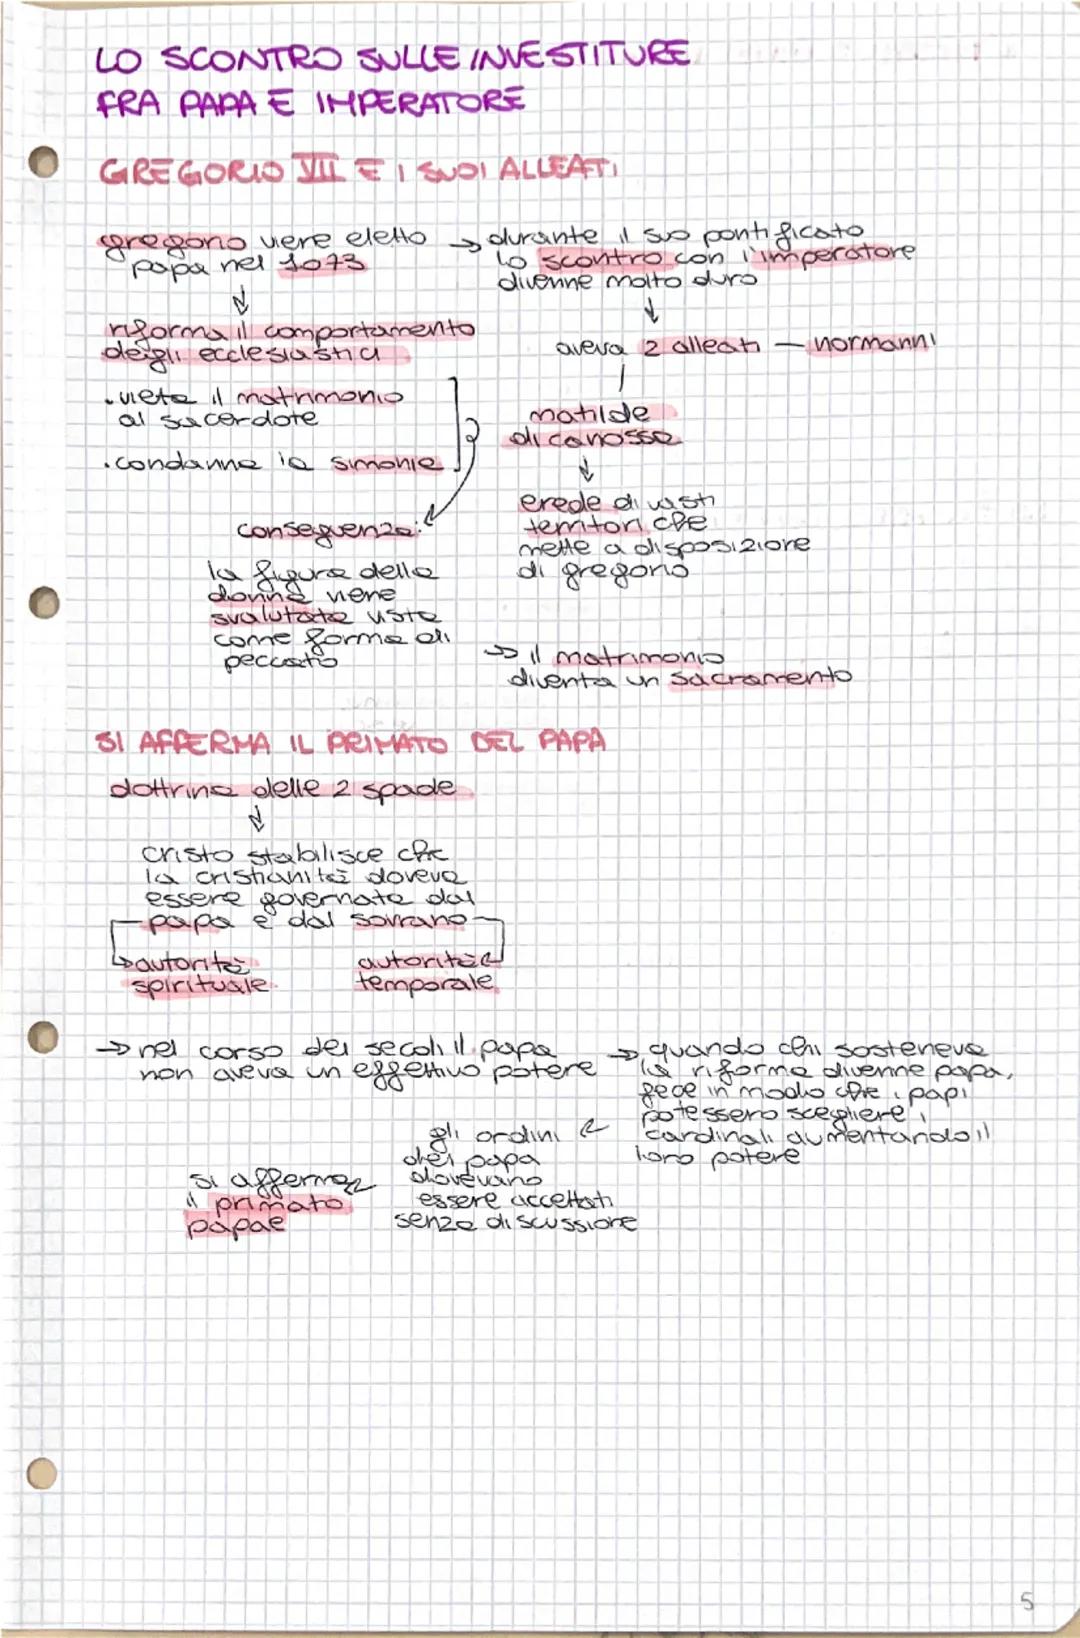 LO SCONTRO SULLE INVESTITURE
FRA PAPA E IMPERATORE
GREGORIO VII E I SUOI ALLEATI
gregorio viene eletto
papa nel 1073
→ durante il suo pontificato
lo scontro con l'imperatore
divenne molto duro
riforma il comportamento
degli ecclesiastici
. vieta il matrimonio
al sacerdote
. condanna la simonia
conseguenza:
la figura della
donna viene
svalutata vista
come forma di
peccato
aveva 2 alleati — normanni
matilde
di canossa
erede di vasti
territori che
mette a disposizione
di gregorio
→ il matrimonio
diventa un sacramento
SI AFFERMA IL PRIMATO DEL PAPA
dottrina delle 2 spade
cristo stabilisce che
la cristianità doveva
essere governata dal
papa e dal sovrano
autorità
spirituale
autorità
temporale
→ nel corso dei secoli il papa
non aveva un effettivo potere
→ quando chi sosteneva
la riforma divenne papa,
fece in modo che i papi
potessero scegliere i
cardinali aumentando il
loro potere
gli ordini
del papa
dovevano
essere accettati
senza discussione
si afferma
il primato
papae
5